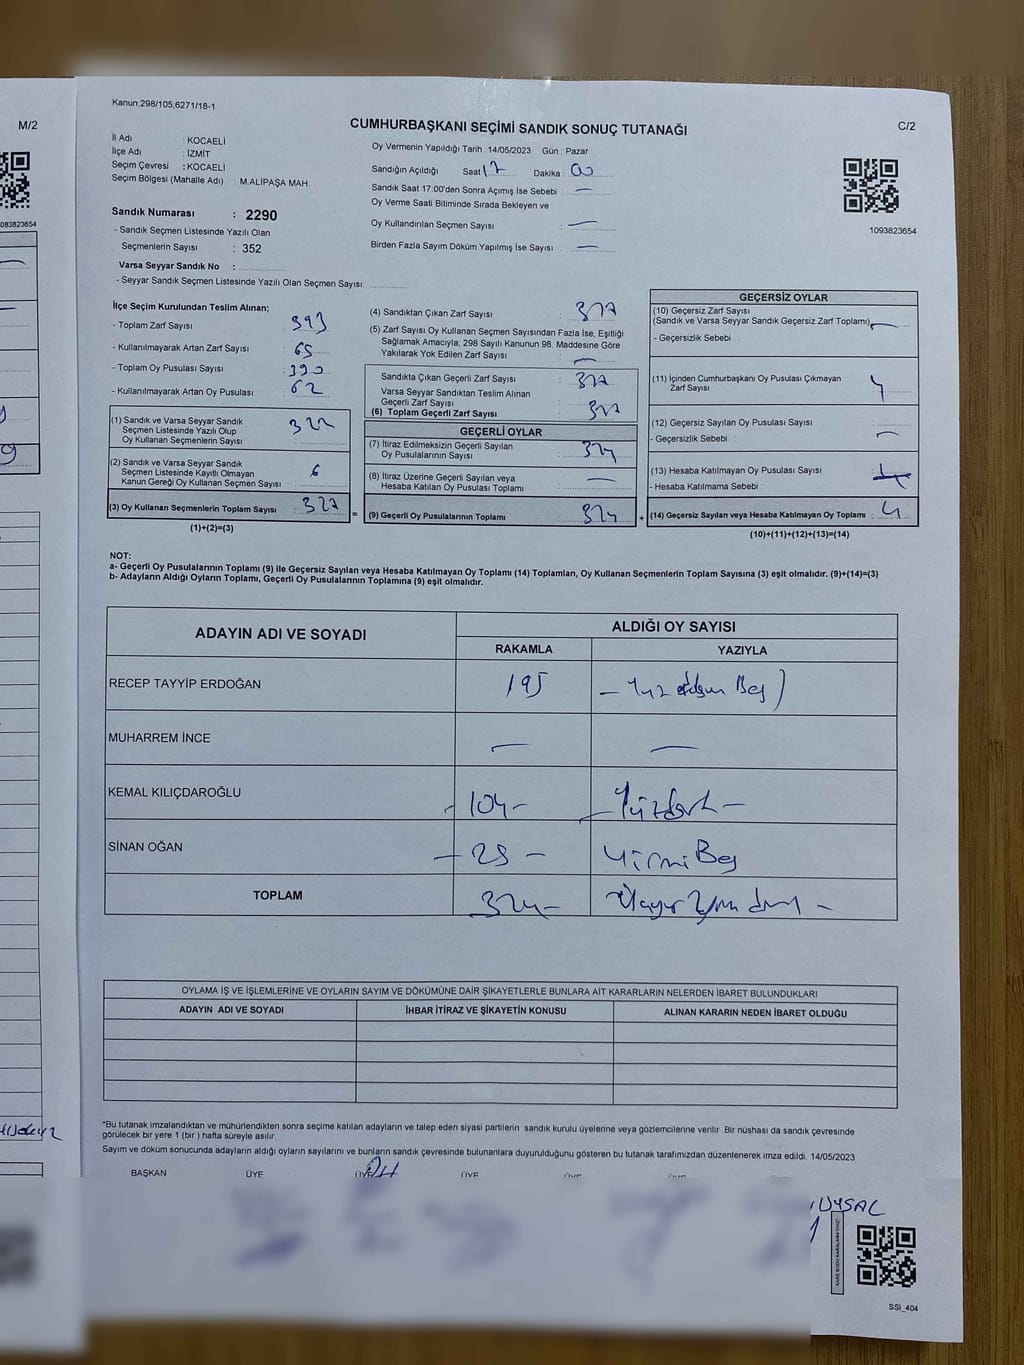 Kanun;298/105,6271/18-1
M/2
CUMHURBAŞKANI SEÇİMİ SANDIK SONUÇ TUTANAĞI
C/2
İl Adı : KOCAELİ
İlçe Adı : İZMİT
Seçim Çevresi : KOCAELİ
Seçim Bölgesi (Mahalle Adı) : M.ALİPAŞA MAH.
Oy Vermenin Yapıldığı Tarih : 14/05/2023 Gün : Pazar
Sandığın Açıldığı Saat 17 Dakika : 00
Sandık Saat 17:00'den Sonra Açımış İse Sebebi : —
Oy Verme Saati Bitiminde Sırada Bekleyen ve
Oy Kullandırılan Seçmen Sayısı : —
Birden Fazla Sayım Döküm Yapılmış İse Sayısı : —
083823654
1093823654
Sandık Numarası : 2290
- Sandık Seçmen Listesinde Yazılı Olan
Seçmenlerin Sayısı : 352
Varsa Seyyar Sandık No :
- Seyyar Sandık Seçmen Listesinde Yazılı Olan Seçmen Sayısı:
İlçe Seçim Kurulundan Teslim Alınan;
- Toplam Zarf Sayısı : 393
- Kullanılmayarak Artan Zarf Sayısı : 65
- Toplam Oy Pusulası Sayısı : 390
- Kullanılmayarak Artan Oy Pusulası : 62
(1) Sandık ve Varsa Seyyar Sandık
Seçmen Listesinde Yazılı Olup
Oy Kullanan Seçmenlerin Sayısı : 322
(2) Sandık ve Varsa Seyyar Sandık
Seçmen Listesinde Kayıtlı Olmayan
Kanun Gereği Oy Kullanan Seçmen Sayısı : 6
(3) Oy Kullanan Seçmenlerin Toplam Sayısı : 327
(1)+(2)=(3)
(4) Sandıktan Çıkan Zarf Sayısı : 327
(5) Zarf Sayısı Oy Kullanan Seçmen Sayısından Fazla İse, Eşitliği
Sağlamak Amacıyla, 298 Sayılı Kanunun 98. Maddesine Göre
Yakılarak Yok Edilen Zarf Sayısı : —
Sandıkta Çıkan Geçerli Zarf Sayısı : 327
Varsa Seyyar Sandıktan Teslim Alınan
Geçerli Zarf Sayısı :
(6) Toplam Geçerli Zarf Sayısı : 327
GEÇERLİ OYLAR
(7) İtiraz Edilmeksizin Geçerli Sayılan
Oy Pusulalarının Sayısı : 324
(8) İtiraz Üzerine Geçerli Sayılan veya
Hesaba Katılan Oy Pusulası Toplamı : —
= (9) Geçerli Oy Pusulalarının Toplamı : 324 +
GEÇERSİZ OYLAR
(10) Geçersiz Zarf Sayısı
(Sandık ve Varsa Seyyar Sandık Geçersiz Zarf Toplamı) : —
- Geçersizlik Sebebi :
(11) İçinden Cumhurbaşkanı Oy Pusulası Çıkmayan
Zarf Sayısı : 4
(12) Geçersiz Sayılan Oy Pusulası Sayısı : —
- Geçersizlik Sebebi :
(13) Hesaba Katılmayan Oy Pusulası Sayısı :
- Hesaba Katılmama Sebebi :
(14) Geçersiz Sayılan veya Hesaba Katılmayan Oy Toplamı : 4
(10)+(11)+(12)+(13)=(14)
NOT:
a- Geçerli Oy Pusulalarının Toplamı (9) ile Geçersiz Sayılan veya Hesaba Katılmayan Oy Toplamı (14) Toplamları, Oy Kullanan Seçmenlerin Toplam Sayısına (3) eşit olmalıdır. (9)+(14)=(3)
b- Adayların Aldığı Oyların Toplamı, Geçerli Oy Pusulalarının Toplamına (9) eşit olmalıdır.
ADAYIN ADI VE SOYADI
ALDIĞI OY SAYISI
RAKAMLA
YAZIYLA
RECEP TAYYİP ERDOĞAN 195 — Yüz doksan Beş
MUHARREM İNCE — —
KEMAL KILIÇDAROĞLU - 104 - - Yüzdört -
SİNAN OĞAN - 25 - Yirmi Beş
TOPLAM 324 - Üçyüz Yirmi dört -
OYLAMA İŞ VE İŞLEMLERİNE VE OYLARIN SAYIM VE DÖKÜMÜNE DAİR ŞİKAYETLERLE BUNLARA AİT KARARLARIN NELERDEN İBARET BULUNDUKLARI
ADAYIN ADI VE SOYADI
İHBAR İTİRAZ VE ŞİKAYETİN KONUSU
ALINAN KARARIN NEDEN İBARET OLDUĞU
*Bu tutanak imzalandıktan ve mühürlendikten sonra seçime katılan adayların ve talep eden siyasi partilerin sandık kurulu üyelerine veya gözlemcilerine verilir. Bir nüshası da sandık çevresinde
görülecek bir yere 1 (bir) hafta süreyle asılır.
Sayım ve döküm sonucunda adayların aldığı oyların sayılarını ve bunların sandık çevresinde bulunanlara duyurulduğunu gösteren bu tutanak tarafımızdan düzenlenerek imza edildi. 14/05/2023
BAŞKAN ÜYE ÜYE ÜYE ÜYE ÜYE
UYSAL
SSİ_404